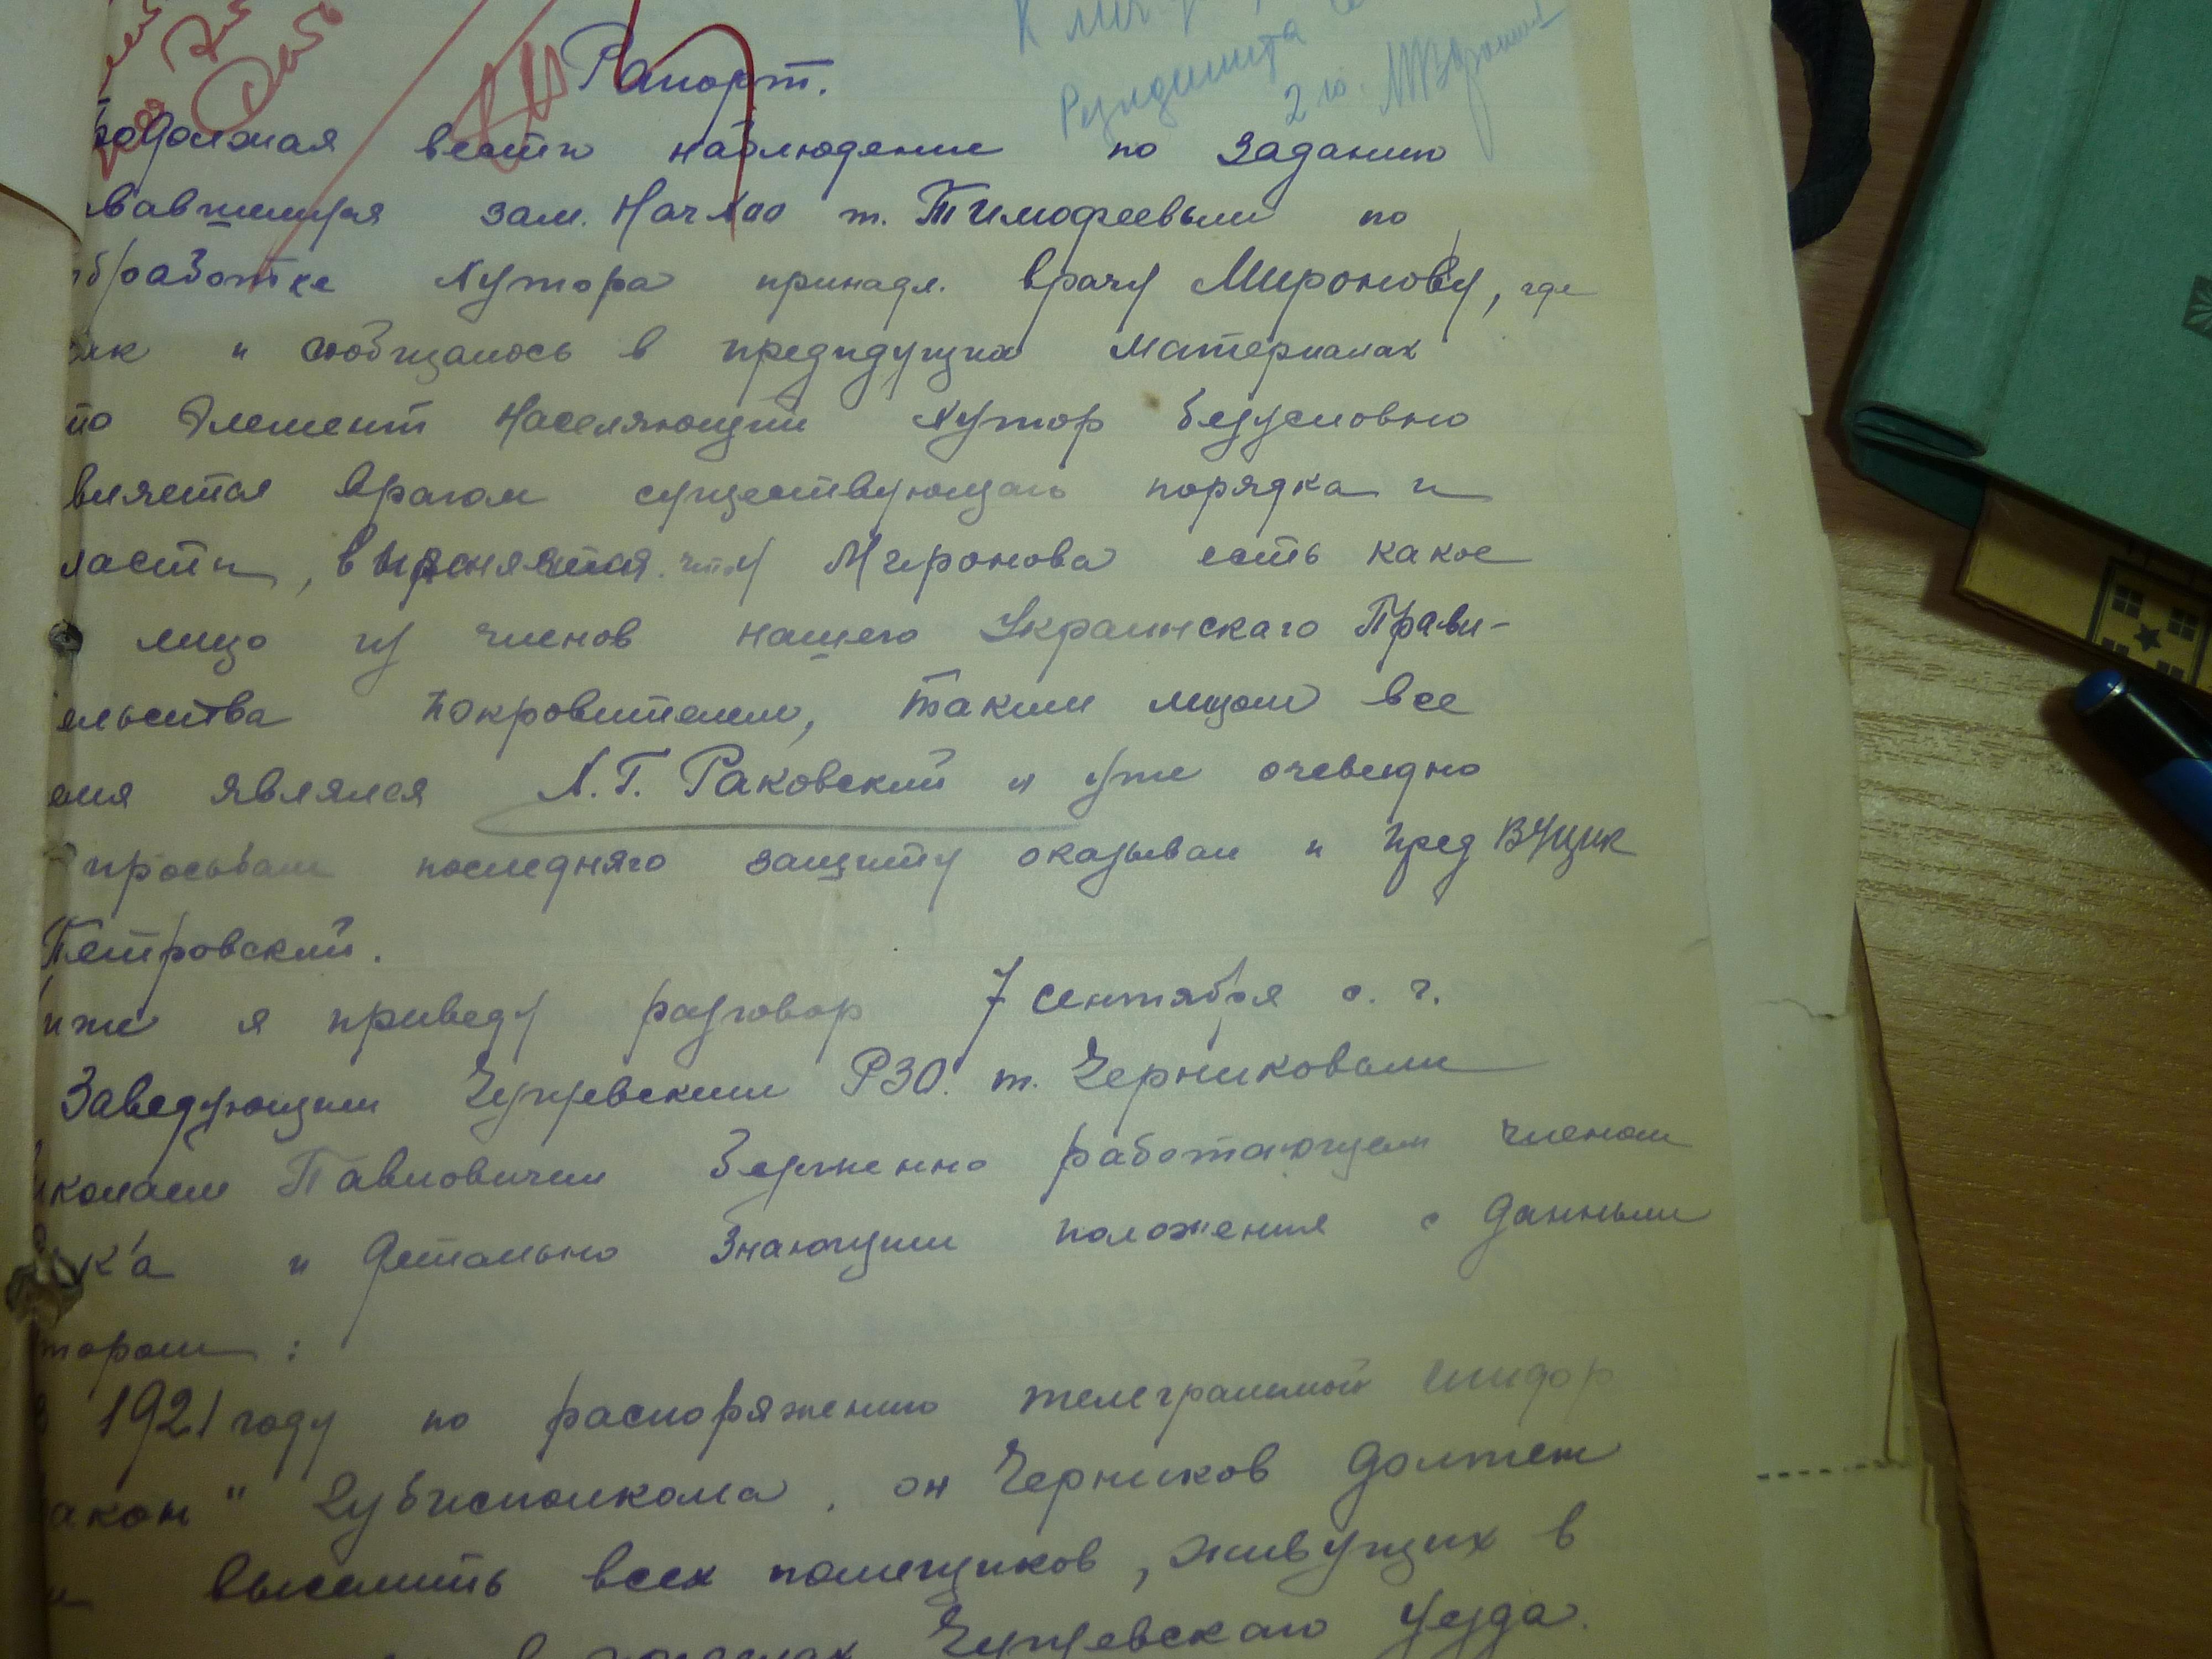 Рапорт.
одолжая вести наблюдение по заданию
вавшимся зам. Нач ХОО т. Тимофеевым по
бработке Хутора принадл. врачу Миронову, где
ак и сообщалось в предидущих материалах
то Элемент Населяющий Хутор безусловно
вляется врагом существующаго порядка и
ласти, выясняется что у Миронова есть какое
лицо из членов нашего Украинскаго Прави-
ельства покровителем, таким лицом все
емя являлся Х. Г. Раковский и уже очевидно
просьбам последняго защиту оказывал и пред ВУЦИК
Петровский.
иже я приведу разговор 7 сентября с. г.
Заведующим Чугуевским РЗО. т. Черниковым
иколаем Павловичем работающем членом
к'а и детально Знающим положения с данным
тором:
1921 году по распоряжению телеграммой
акон" Губисполкома, он Черников должен
выселить всех помещиков, живущих в
в Чугуевскаго уезда.